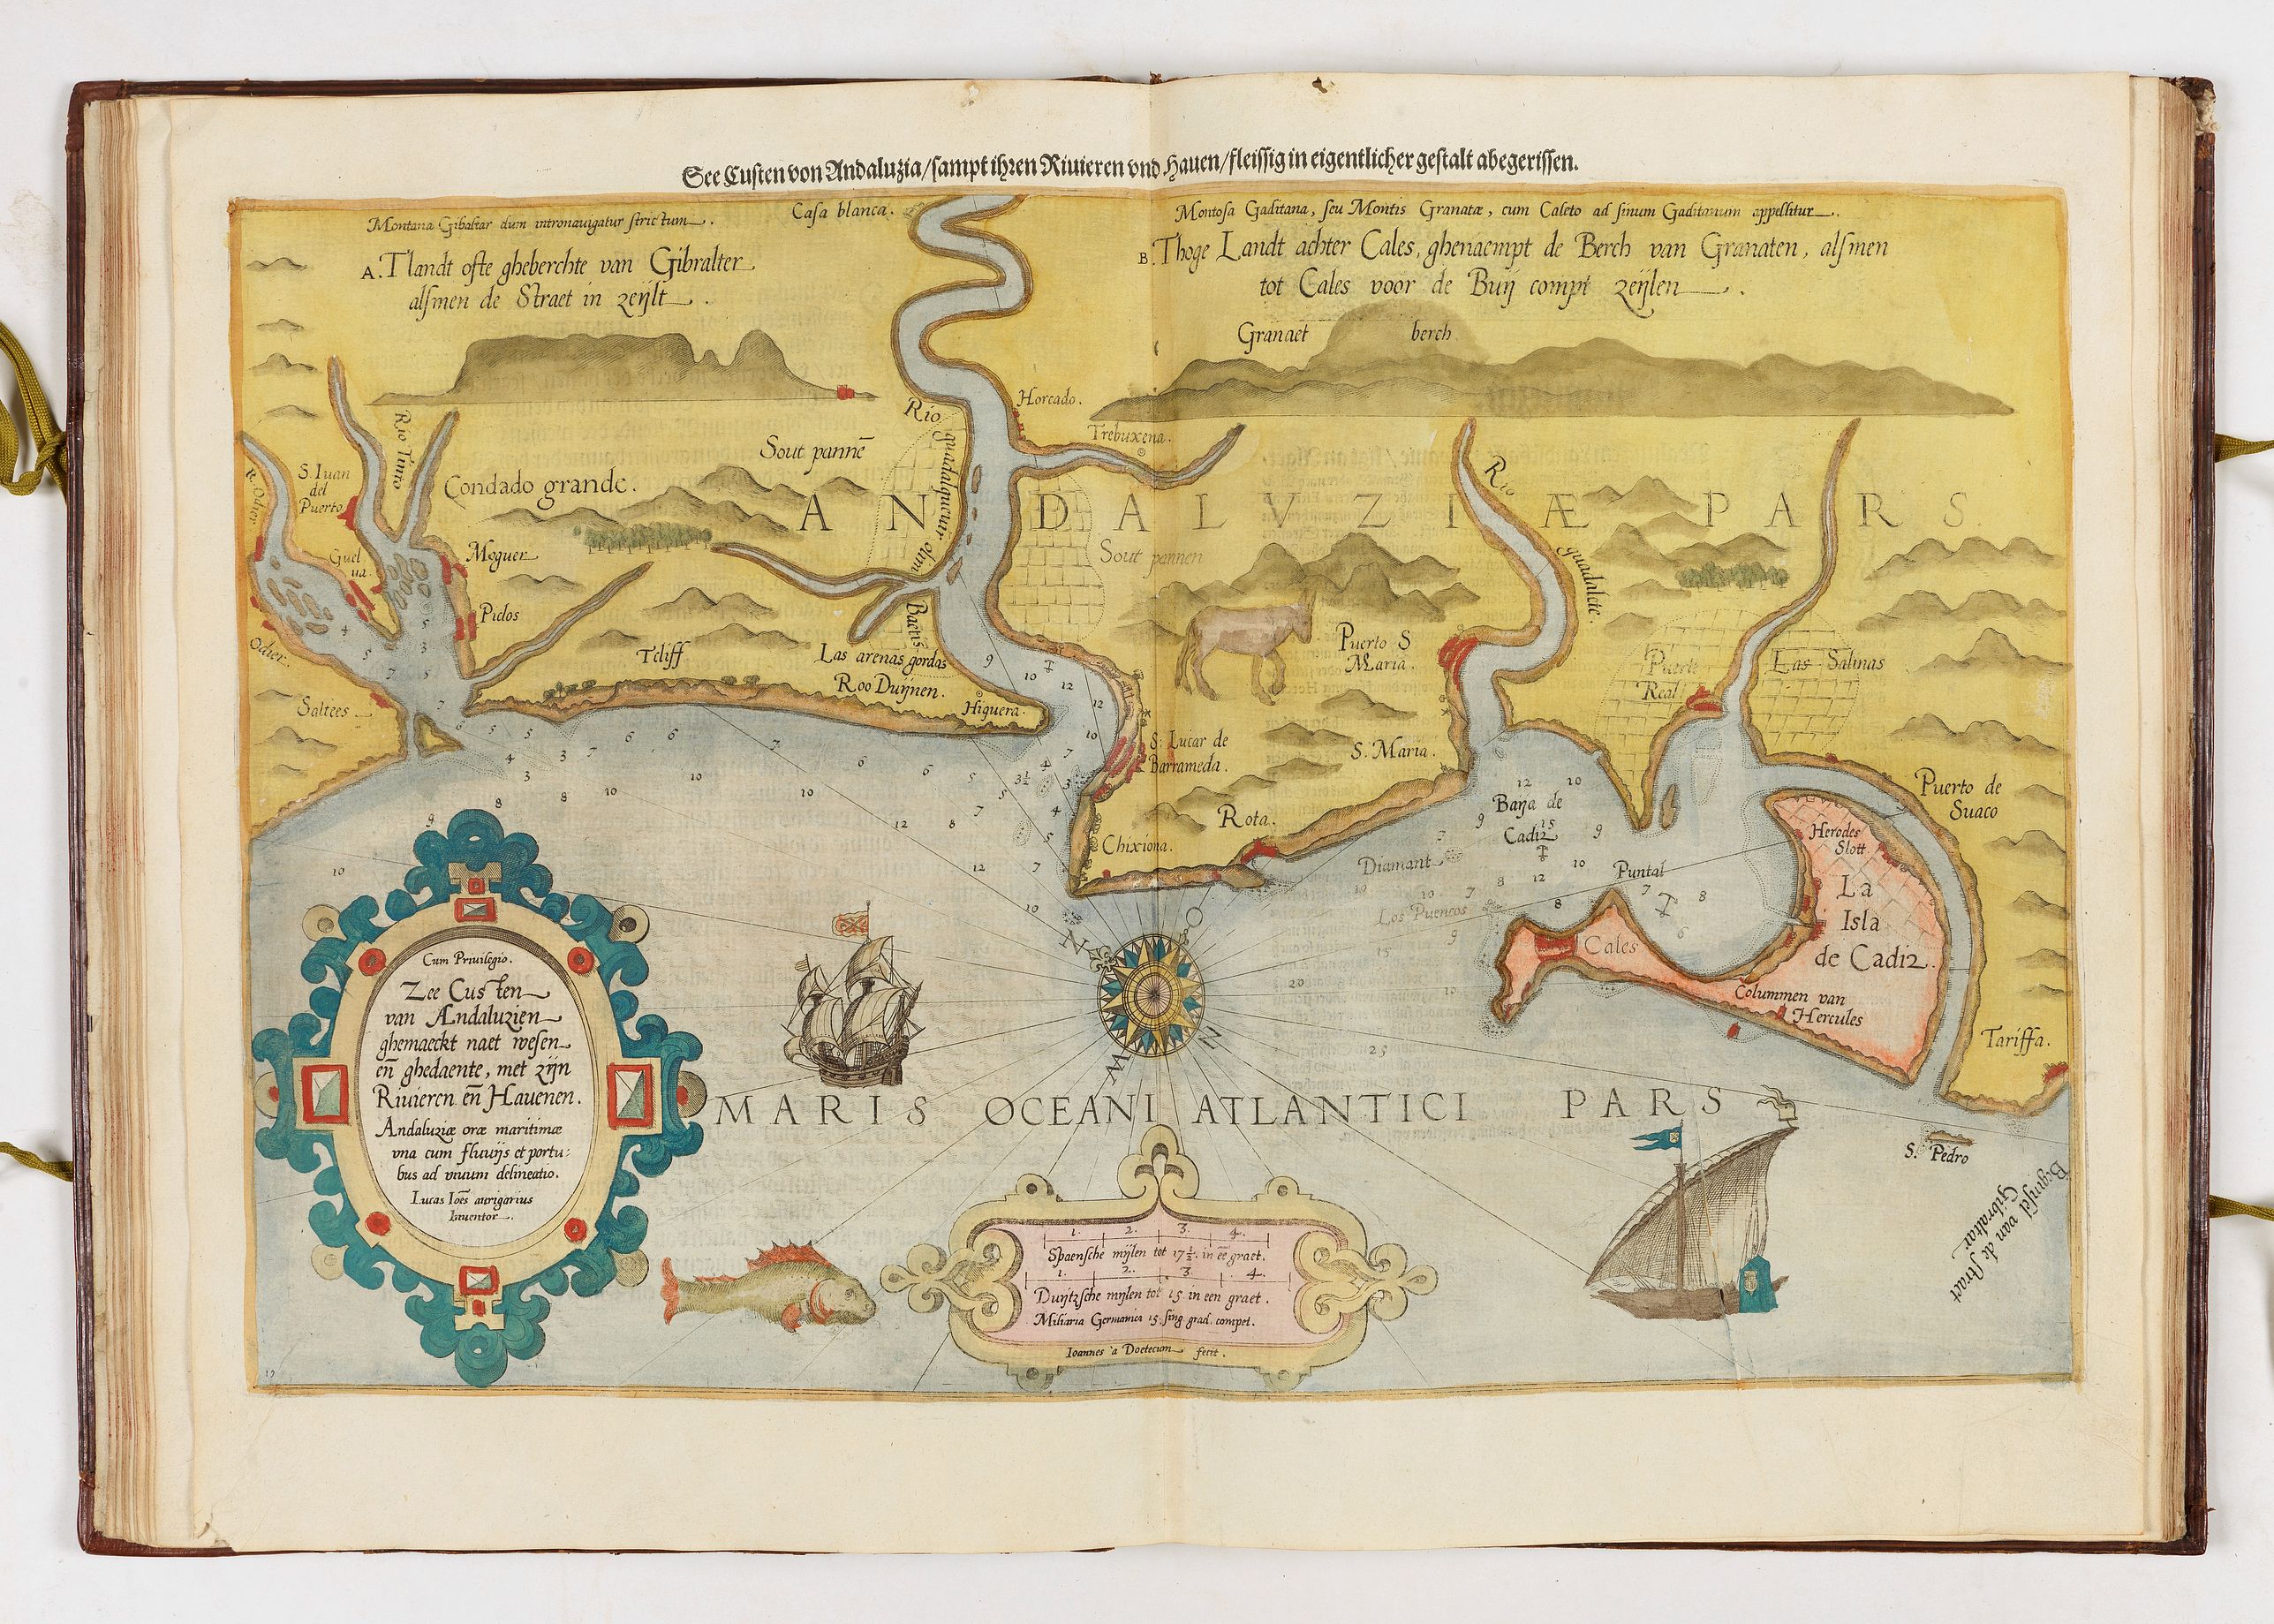 See Custen von Andaluzia/sampt ihren Riuieren vnd Hauen/fleissig in eigentlicher gestalt abegerissen.
Montana Gibaltar dum intronauigatur strictum.
A. Tlandt ofte gheberchte van Gibralter
alsmen de Straet in zeijlt.
Casa blanca.
Montosa Gaditana, seu Montis Granatæ, cum Caleto ad sinum Gaditanum appellitur.
B. Thoge Landt achter Cales, ghenaempt de Berch van Granaten, alsmen
tot Cales voor de Buij compt zeijlen.
Granaet berch
Horcado.
Trebuxena.
Rio guadalqueuir olim Baetis
Sout pannē
R. Odier
S. Iuan
del
Puerto
Rio Tinto
Condado grande.
ANDALVZIÆ PARS.
Sout pannen
Rio guadalete.
Guel
ua.
Moguer
Piclos
Odier.
Tcliff
Las arenas gordas
Roo Duijnen.
Higuera.
Saltees
Puerto S
Maria.
Puerte
Real
Las Salinas
S. Lucar de
Barrameda.
S. Maria.
Rota.
Chixiona.
Baija de
Cadiz
Diamant
Los Puercos
Puntal
Puerto de
Suaco
Herodes
Slott.
La
Isla
de Cadiz.
Cales
Columnen van
Hercules
Tariffa.
S. Pedro
Beginsel van de straet
Gibraltar
N
O
Z
W
MARIS OCEANI ATLANTICI PARS
Cum Priuilegio.
Zee Custen
van Andaluzien
ghemaeckt naet wesen
eñ ghedaente, met zijn
Riuieren eñ Hauenen.
Andaluziæ oræ maritimæ
vna cum fluuijs et portu:
bus ad viuum delineatio.
Lucas Ioẽs aurigarius
Inuentor.
1. 2. 3. 4.
Spaensche mijlen tot 17½ in eē graet.
1. 2. 3. 4.
Duijtzsche mijlen tot 15 in een graet.
Miliaria Germanica 15. sing. grad. compet.
Ioannes a Doetecum fecit.